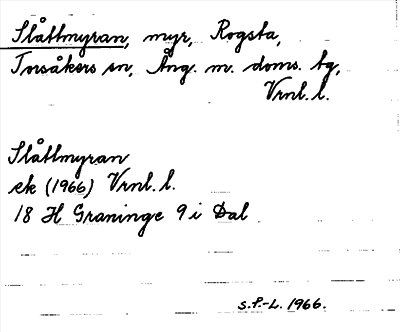 Slåttmyran, myr, Rogsta,
Torsåkers sn, Ång. m. doms. tg,
Vrnl. l.
Slåttmyran
ek (1966) Vrnl. l.
18 H Graninge 9 i Dal
S.F.-L. 1966.